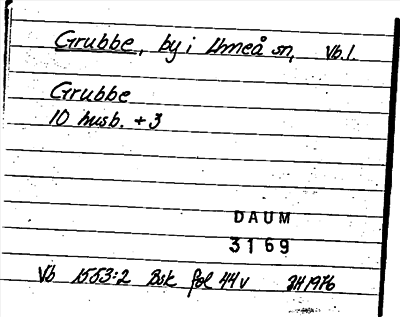 Grubbe, by i Umeå sn, Vb.l.
Grubbe
10 husb. + 3
DAUM
3169
Vb 1553:2 Bsk fol 44v JH 1976